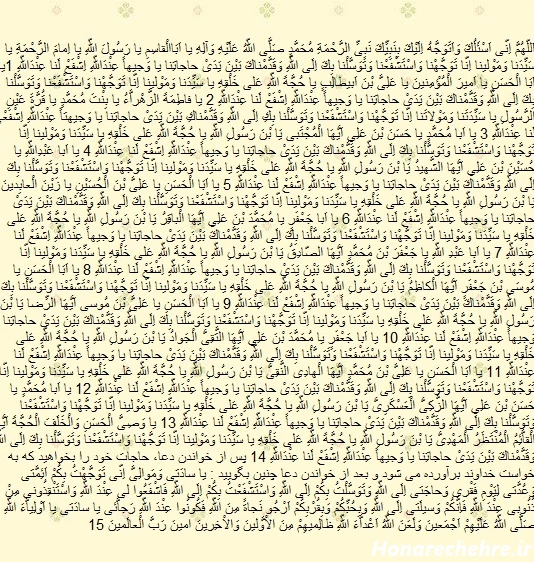 اَللّهُمَّ اِنّی اَسْئَلُكَ وَاَتَوَجَّهُ اِلَیْكَ بِنَبِیِّكَ نَبِیِّ الرَّحْمَةِ مُحَمَّدٍ صَلَّی اللّهُ عَلَیْهِ وَآلِهِ یا اَبَاالْقاسِمِ یا رَسُولَ اللّهِ یا اِمامَ الرَّحْمَةِ یا
سَیِّدَنا وَمَوْلینا اِنّا تَوَجَّهْنا وَاسْتَشْفَعْنا وَتَوَسَّلْنا بِكَ اِلَی اللّهِ وَقَدَّمْناكَ بَیْنَ یَدَیْ حاجاتِنا یا وَجیهاً عِنْدَاللّهِ اِشْفَعْ لَنا عِنْدَاللّهِ 1یا
اَبَا الْحَسَنِ یا اَمیرَ الْمُؤْمِنینَ یا عَلِیَّ بْنَ اَبیطالِبٍ یا حُجَّةَ اللّهِ عَلی خَلْقِهِ یا سَیِّدَنا وَمَوْلینا اِنّا تَوَجَّهْنا وَاسْتَشْفَعْنا وَتَوَسَّلْنا
بِكَ اِلَی اللّهِ وَقَدَّمْناكَ بَیْنَ یَدَیْ حاجاتِنا یا وَجیهاً عِنْدَاللّهِ اِشْفَعْ لَنا عِنْدَاللّهِ 2 یا فاطِمَةُ الزَّهْراَّءُ یا بِنْتَ مُحَمَّدٍ یا قُرَّةَ عَیْنِ
الرَّسُولِ یا سَیِّدَتَنا وَمَوْلاتَنا اِنّا تَوَجَّهْنا وَاسْتَشْفَعْنا وَتَوَسَّلْنا بِكِ اِلَی اللّهِ وَقَدَّمْناكِ بَیْنَ یَدَیْ حاجاتِنا یا وَجیهَةً عِنْدَاللّهِ اِشْفَعی
لَنا عِنْدَاللّهِ 3 یا اَبا مُحَمَّدٍ یا حَسَنَ بْنَ عَلِیٍّ اَیُّهَا الْمُجْتَبی یَا بْنَ رَسُولِ اللّهِ یا حُجَّةَ اللّهِ عَلی خَلْقِهِ یا سَیِّدَنا وَمَوْلینا اِنّا
تَوَجَّهْنا وَاسْتَشْفَعْنا وَتَوَسَّلْنا بِكَ اِلَی اللّهِ وَقَدَّمْناكَ بَیْنَ یَدَیْ حاجاتِنا یا وَجیهاً عِنْدَاللّهِ اِشْفَعْ لَنا عِنْدَاللّهِ 4 یا اَبا عَبْدِاللّهِ یا
حُسَیْنَ بْنَ عَلِیٍّ اَیُّهَا الشَّهیدُ یَا بْنَ رَسُولِ اللّهِ یا حُجَّةَ اللّهِ عَلی خَلْقِهِ یا سَیِّدَنا وَمَوْلینا اِنّا تَوَجَّهْنا وَاسْتَشْفَعْنا وَتَوَسَّلْنا بِكَ
اِلَی اللّهِ وَقَدَّمْناكَ بَیْنَ یَدَیْ حاجاتِنا یا وَجیهاً عِنْدَاللّهِ اِشْفَعْ لَنا عِنْدَاللّهِ 5 یا اَبَا الْحَسَنِ یا عَلِیَّ بْنَ الْحُسَیْنِ یا زَیْنَ الْعابِدینَ
یَا بْنَ رَسُولِ اللّهِ یا حُجَّةَ اللّهِ عَلی خَلْقِهِ یا سَیِّدَنا وَمَوْلینا اِنّا تَوَجَّهْنا وَاسْتَشْفَعْنا وَتَوَسَّلْنا بِكَ اِلَی اللّهِ وَقَدَّمْناكَ بَیْنَ یَدَیْ
حاجاتِنا یا وَجیهاً عِنْدَاللّهِ اِشْفَعْ لَنا عِنْدَاللّهِ 6 یا اَبا جَعْفَرٍ یا مُحَمَّدَ بْنَ عَلِیٍّ اَیُّهَا الْباقِرُ یَا بْنَ رَسُولِ اللّهِ یا حُجَّةَ اللّهِ عَلی
خَلْقِهِ یا سَیِّدَنا وَمَوْلینا اِنّا تَوَجَّهْنا وَاسْتَشْفَعْنا وَتَوَسَّلْنا بِكَ اِلَی اللّهِ وَقَدَّمْناكَ بَیْنَ یَدَیْ حاجاتِنا یا وَجیهاً عِنْدَاللّهِ اِشْفَعْ لَنا
عِنْدَاللّهِ 7 یا اَبا عَبْدِ اللّهِ یا جَعْفَرَ بْنَ مُحَمَّدٍ اَیُّهَا الصّادِقُ یَا بْنَ رَسُولِ اللّهِ یا حُجَّةَ اللّهِ عَلی خَلْقِهِ یا سَیِّدَنا وَمَوْلینا اِنّا
تَوَجَّهْنا وَاسْتَشْفَعْنا وَتَوَسَّلْنا بِكَ اِلَی اللّهِ وَقَدَّمْناكَ بَیْنَ یَدَیْ حاجاتِنا یا وَجیهاً عِنْدَاللّهِ اِشْفَعْ لَنا عِنْدَاللّهِ 8 یا اَبَا الْحَسَنِ یا
مُوسَی بْنَ جَعْفَرٍ اَیُّهَا الْكاظِمُ یَا بْنَ رَسُولِ اللّهِ یا حُجَّةَ اللّهِ عَلی خَلْقِهِ یا سَیِّدَنا وَمَوْلینا اِنّا تَوَجَّهْنا وَاسْتَشْفَعْنا وَتَوَسَّلْنا بِكَ
اِلَی اللّهِ وَقَدَّمْناكَ بَیْنَ یَدَیْ حاجاتِنا یا وَجیهاً عِنْدَاللّهِ اِشْفَعْ لَنا عِنْدَاللّهِ 9 یا اَبَا الْحَسَنِ یا عَلِیَّ بْنَ مُوسی اَیُّهَا الرِّضا یَا بْنَ
رَسُولِ اللّهِ یا حُجَّةَ اللّهِ عَلی خَلْقِهِ یا سَیِّدَنا وَمَوْلینا اِنّا تَوَجَّهْنا وَاسْتَشْفَعْنا وَتَوَسَّلْنا بِكَ اِلَی اللّهِ وَقَدَّمْناكَ بَیْنَ یَدَیْ حاجاتِنا یا
وَجیهاً عِنْدَاللّهِ اِشْفَعْ لَنا عِنْدَاللّهِ 10 یا اَبا جَعْفَرٍ یا مُحَمَّدَ بْنَ عَلِیٍّ اَیُّهَا التَّقِیُّ الْجَوادُ یَا بْنَ رَسُولِ اللّهِ یا حُجَّةَ اللّهِ عَلی
خَلْقِهِ یا سَیِّدَنا وَمَوْلینا اِنّا تَوَجَّهْنا وَاسْتَشْفَعْنا وَتَوَسَّلْنا بِكَ اِلَی اللّهِ وَقَدَّمْناكَ بَیْنَ یَدَیْ حاجاتِنا یا وَجیهاً عِنْدَاللّهِ اِشْفَعْ لَنا
عِنْدَاللّهِ 11 یا اَبَا الْحَسَنِ یا عَلِیَّ بْنَ مُحَمَّدٍ اَیُّهَا الْهادِی النَّقِیُّ یَا بْنَ رَسُولِ اللّهِ یا حُجَّةَ اللّهِ عَلی خَلْقِهِ یا سَیِّدَنا وَمَوْلینا اِنّا
تَوَجَّهْنا وَاسْتَشْفَعْنا وَتَوَسَّلْنا بِكَ اِلَی اللّهِ وَقَدَّمْناكَ بَیْنَ یَدَیْ حاجاتِنا یا وَجیهاً عِنْدَاللّهِ اِشْفَعْ لَنا عِنْدَاللّهِ 12 یا اَبا مُحَمَّدٍ یا
حَسَنَ بْنَ عَلِیٍّ اَیُّهَا الزَّكِیُّ الْعَسْكَرِیُّ یَا بْنَ رَسُولِ اللّهِ یا حُجَّةَ اللّهِ عَلی خَلْقِهِ یا سَیِّدَنا وَمَوْلینا اِنّا تَوَجَّهْنا وَاسْتَشْفَعْنا
وَتَوَسَّلْنا بِكَ اِلَی اللّهِ وَقَدَّمْناكَ بَیْنَ یَدَیْ حاجاتِنا یا وَجیهاً عِنْدَاللّهِ اِشْفَعْ لَنا عِنْدَاللّهِ 13 یا وَصِیَّ الْحَسَنِ وَالْخَلَفَ الْحُجَّةَ اَیُّهَا
الْقاَّئِمُ الْمُنْتَظَرُ الْمَهْدِیُّ یَا بْنَ رَسُولِ اللّهِ یا حُجَّةَ اللّهِ عَلی خَلْقِهِ یا سَیِّدَنا وَمَوْلینا اِنّا تَوَجَّهْنا وَاسْتَشْفَعْنا وَتَوَسَّلْنا بِكَ اِلَی اللّهِ
وَقَدَّمْناكَ بَیْنَ یَدَیْ حاجاتِنا یا وَجیهاً عِنْدَاللّهِ اِشْفَعْ لَنا عِنْدَاللّهِ 14 پس از خواندن دعاء، حاجات خود را بخواهید که به
خواست خداوند برآورده می شود و بعد از خواندن دعا چنین بگویید : یا سادَتی وَمَوالِیَّ اِنّی تَوَجَّهْتُ بِكُمْ اَئِمَّتی
وَعُدَّتی لِیَوْمِ فَقْری وَحاجَتی اِلَی اللّهِ وَتَوَسَّلْتُ بِكُمْ اِلَی اللّهِ وَاسْتَشْفَعْتُ بِكُمْ اِلَی اللّهِ فَاشْفَعُوا لی عِنْدَ اللّهِ وَاسْتَنْقِذُونی مِنْ
ذُنُوبی عِنْدَ اللّهِ فَاِنَّكُمْ وَسیلَتی اِلَی اللّهِ وَبِحُبِّكُمْ وَبِقُرْبِكُمْ اَرْجُو نَجاةً مِنَ اللّهِ فَكُونُوا عِنْدَ اللّهِ رَجاَّئی یا سادَتی یا اَوْلِیاَّءَ اللّهِ
صَلَّی اللّهُ عَلَیْهِمْ اَجْمَعینَ وَلَعَنَ اللّهُ اَعْداَّءَ اللّهِ ظالِمیهِمْ مِنَ الْأَوَّلینَ وَالْأخِرینَ آمینَ رَبَّ الْعالَمینَ 15
Honarechehre.ir